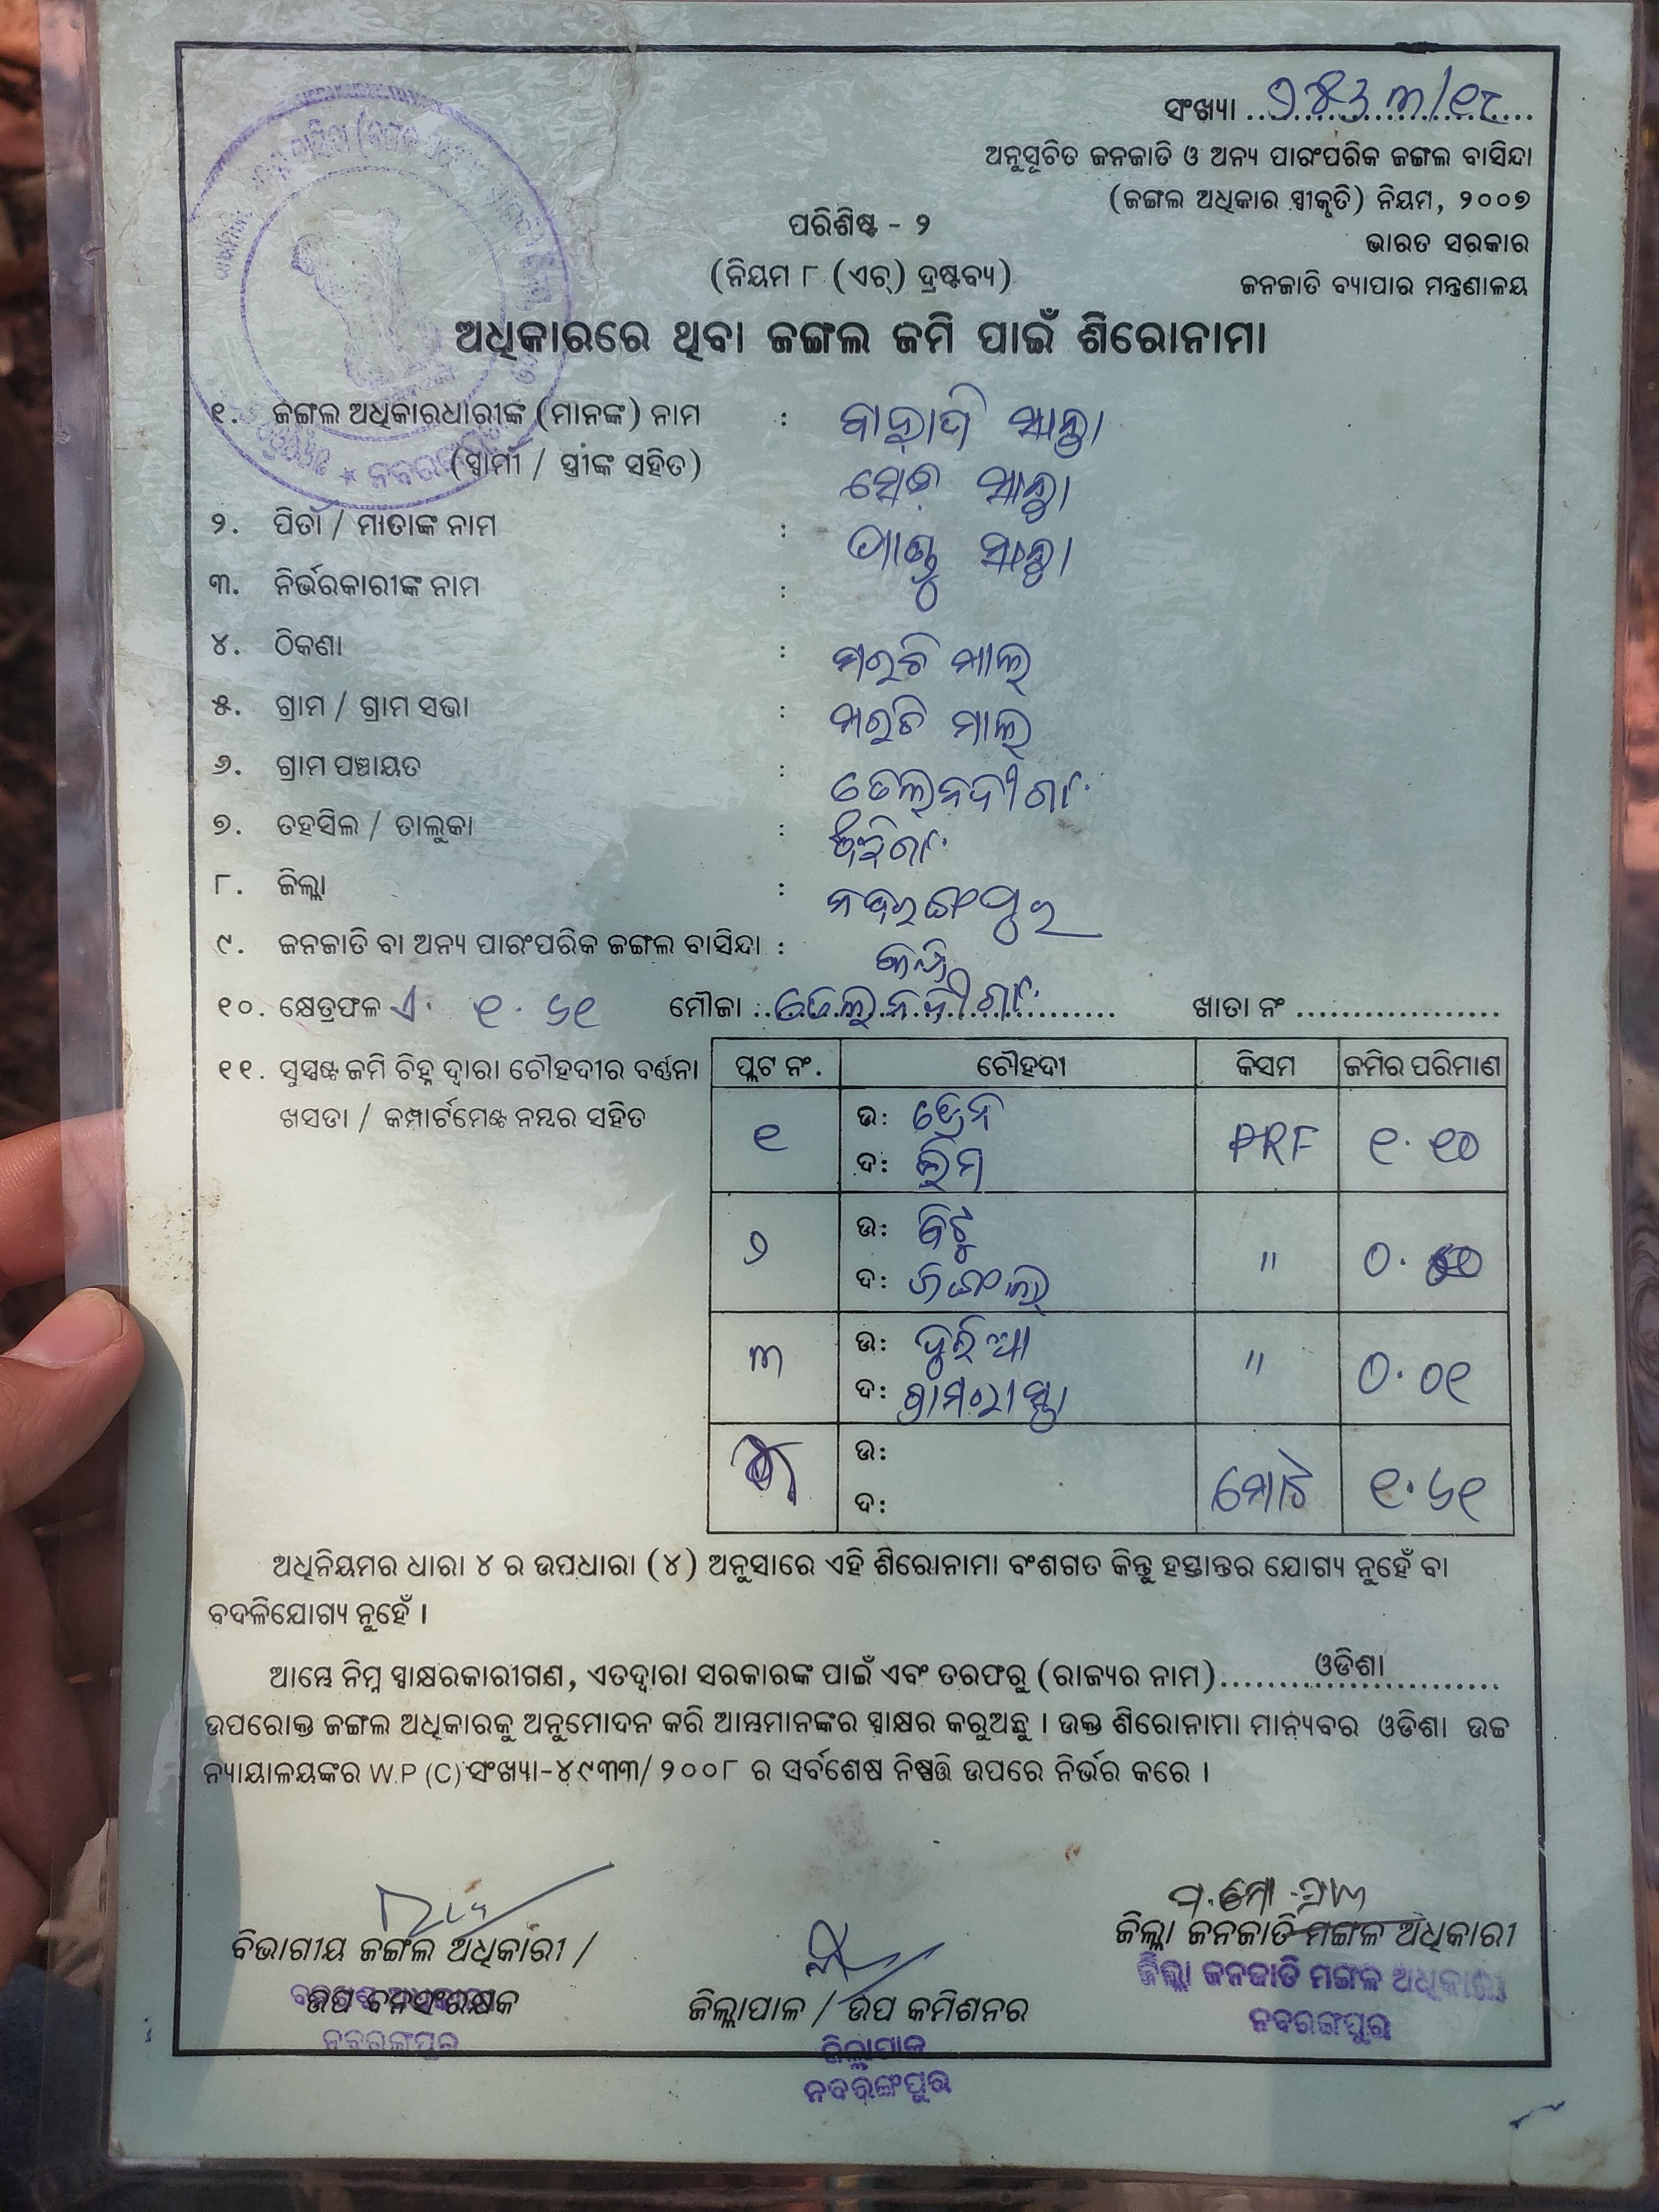 ସଂଖ୍ୟା
ଅନୁସୂଚିତ ଜନଜାତି ଓ ଅନ୍ୟ ପାରଂପରିକ ଜଙ୍ଗଲ ବାସିନ୍ଦା
(ଜଙ୍ଗଲ ଅଧିକାର ସ୍ୱୀକୃତି) ନିୟମ, ୨୦୦୭
ଭାରତ ସରକାର
ଜନଜାତି ବ୍ୟାପାର ମନ୍ତ୍ରଣାଳୟ
ପରିଶିଷ୍ଟ - ୨
(ନିୟମ ୮ (ଏଚ୍) ଦ୍ରଷ୍ଟବ୍ୟ)
ଅଧିକାରରେ ଥିବା ଜଙ୍ଗଲ ଜମି ପାଇଁ ଶିରୋନାମା
୧. ଜଙ୍ଗଲ ଅଧିକାରଧାରୀଙ୍କ (ମାନଙ୍କ) ନାମ :
(ସ୍ୱାମୀ / ସ୍ତ୍ରୀଙ୍କ ସହିତ)
୨. ପିତା / ମାତାଙ୍କ ନାମ :
୩. ନିର୍ଭରକାରୀଙ୍କ ନାମ :
୪. ଠିକଣା :
୫. ଗ୍ରାମ / ଗ୍ରାମ ସଭା :
୬. ଗ୍ରାମ ପଞ୍ଚାୟତ : ତେଲନଦୀଗାଂ
୭. ତହସିଲ / ତାଲୁକା :
୮. ଜିଲ୍ଲା : ନବରଙ୍ଗପୁର
୯. ଜନଜାତି ବା ଅନ୍ୟ ପାରଂପରିକ ଜଙ୍ଗଲ ବାସିନ୍ଦା :
୧୦. କ୍ଷେତ୍ରଫଳ ଏ. ୧.୬୧ ମୌଜା : ତେଲନଦୀଗାଂ ଖାତା ନଂ
୧୧. ସୁସ୍ପଷ୍ଟ ଜମି ଚିହ୍ନ ଦ୍ୱାରା ଚୌହଦୀର ବର୍ଣ୍ଣନା
ଖସଡା / କମ୍ପାର୍ଟମେଣ୍ଟ ନମ୍ବର ସହିତ
ପ୍ଲଟ ନଂ. ଚୌହଦୀ କିସମ ଜମିର ପରିମାଣ
୧ ଉ: ଡ୍ରେନ PRF ୧.୧୦
ଦ: ଲିମ
୨ ଉ: " ୦.
ଦ: ଜଙ୍ଗଲ
୩ ଉ: " ୦.୦୧
ଦ: ଗ୍ରାମରାସ୍ତା
ଉ: ମୋଟ ୧.୬୧
ଦ:
ଅଧିନିୟମର ଧାରା ୪ ର ଉପଧାରା (୪) ଅନୁସାରେ ଏହି ଶିରୋନାମା ବଂଶଗତ କିନ୍ତୁ ହସ୍ତାନ୍ତର ଯୋଗ୍ୟ ନୁହେଁ ବା
ବଦଳିଯୋଗ୍ୟ ନୁହେଁ ।
ଆମ୍ଭେ ନିମ୍ନ ସ୍ୱାକ୍ଷରକାରୀଗଣ, ଏତଦ୍ୱାରା ସରକାରଙ୍କ ପାଇଁ ଏବଂ ତରଫରୁ (ରାଜ୍ୟର ନାମ) ଓଡିଶା
ଉପରୋକ୍ତ ଜଙ୍ଗଲ ଅଧିକାରକୁ ଅନୁମୋଦନ କରି ଆମ୍ଭମାନଙ୍କର ସ୍ୱାକ୍ଷର କରୁଅଛୁ । ଉକ୍ତ ଶିରୋନାମା ମାନ୍ୟବର ଓଡିଶା ଉଚ୍ଚ
ନ୍ୟାୟାଳୟଙ୍କର W.P (C) ସଂଖ୍ୟା-୪୯୩୩/୨୦୦୮ ର ସର୍ବଶେଷ ନିଷ୍ପତ୍ତି ଉପରେ ନିର୍ଭର କରେ ।
ବିଭାଗୀୟ ଜଙ୍ଗଲ ଅଧିକାରୀ /
ଉପ ବନସଂରକ୍ଷକ
ନବରଙ୍ଗପୁର
ଜିଲ୍ଲାପାଳ / ଉପ କମିଶନର
ଜିଲ୍ଲାପାଳ
ନବରଙ୍ଗପୁର
ଜିଲ୍ଲା ଜନଜାତି ମଙ୍ଗଳ ଅଧିକାରୀ
ଜିଲ୍ଲା ଜନଜାତି ମଙ୍ଗଳ ଅଧିକାରୀ
ନବରଙ୍ଗପୁର